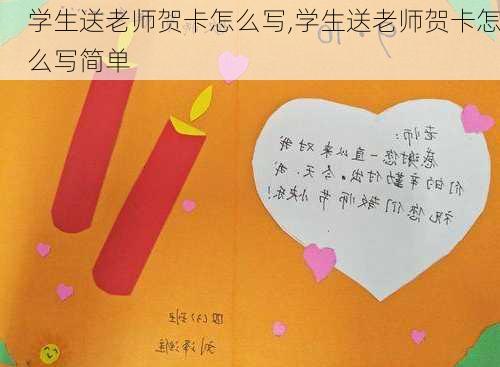 学生送老师贺卡怎么写,学生送老师贺卡怎
么写简单
9.10
老师:
感谢您一直以来对我
们的辛勤付出。今天,我
祝您们教师节快乐!